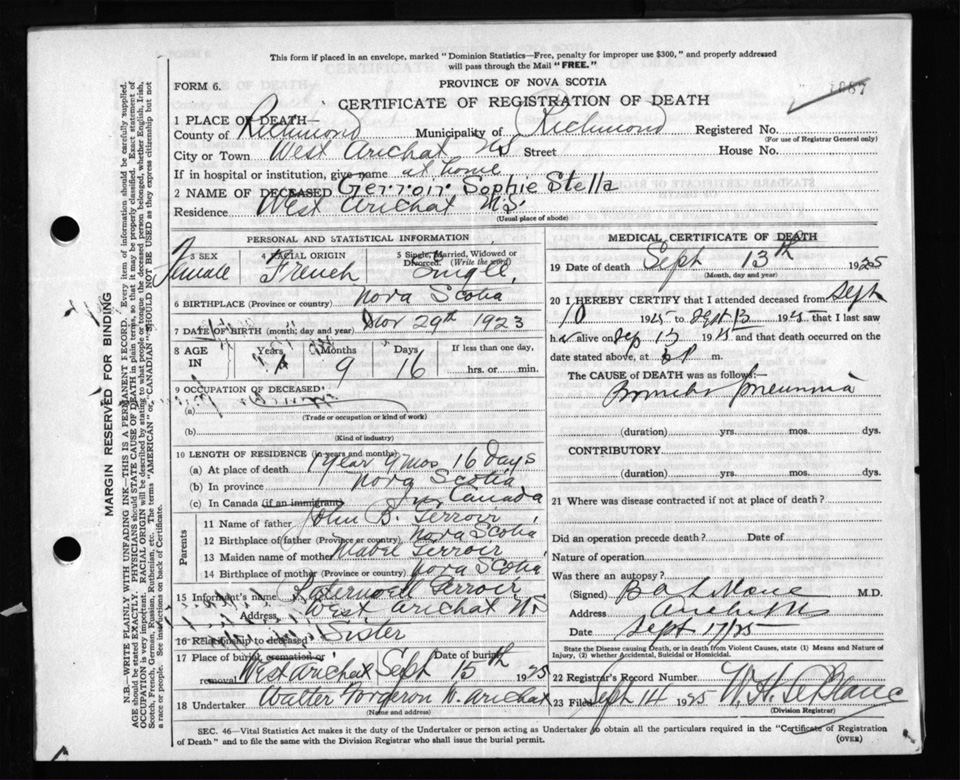 This form if placed in an envelope, marked "Dominion Statistics—Free, penalty for improper use $300," and properly addressed
will pass through the Mail "FREE."
FORM 6.
PROVINCE OF NOVA SCOTIA
CERTIFICATE OF REGISTRATION OF DEATH
1 PLACE OF DEATH—
County of Richmond Municipality of Richmond Registered No.
(For use of Registrar General only)
City or Town West Arichat NS Street House No.
If in hospital or institution, give name at home
2 NAME OF DECEASED Gerroir Sophie Stella
Residence West Arichat N.S.
(Usual place of abode)
PERSONAL AND STATISTICAL INFORMATION
3 SEX Female
4 RACIAL ORIGIN French
5 Single, Married, Widowed or Divorced. (Write the word) Single
6 BIRTHPLACE (Province or country) Nova Scotia
7 DATE OF BIRTH (month; day and year) Nov 29th 1923
8 AGE IN Years 1 Months 9 Days 16 If less than one day, hrs. or min.
9 OCCUPATION OF DECEASED
(a)
(Trade or occupation or kind of work)
(b)
(Kind of industry)
10 LENGTH OF RESIDENCE (in years and months)
(a) At place of death 1 year 9 mos 16 days
(b) In province Nova Scotia
(c) In Canada (if an immigrant) in Canada
Parents
11 Name of father John B. Gerroir
12 Birthplace of father (Province or country) Nova Scotia
13 Maiden name of mother Mabel Gerroir
14 Birthplace of mother (Province or country) Nova Scotia
15 Informant's name Gerroir
Address West Arichat NS
16 Relationship to deceased Sister
17 Place of burial, cremation or removal West Arichat Date of burial Sept 15th 1925
18 Undertaker Walter Forgeron W. Arichat
(Name and address)
MEDICAL CERTIFICATE OF DEATH
19 Date of death Sept 13th 1925
(Month, day and year)
20 I HEREBY CERTIFY that I attended deceased from Sept
10 1925 to Sept 13 1925 that I last saw
h alive on Sep 13 1925 and that death occurred on the
date stated above, at P m.
The CAUSE of DEATH was as follows:
Broncho pneumonia
(duration) yrs. mos. dys.
CONTRIBUTORY
(duration) yrs. mos. dys.
21 Where was disease contracted if not at place of death?
Did an operation precede death? Date of
Nature of operation
Was there an autopsy?
(Signed) B A LeBlanc M.D.
Address Arichat
Date Sept 17/25
State the Disease causing Death, or in death from Violent Causes, state (1) Means and Nature of Injury, (2) whether Accidental, Suicidal or Homicidal.
22 Registrar's Record Number
23 Filed Sept 14 1925 W. H. LeBlanc
(Division Registrar)
SEC. 46—Vital Statistics Act makes it the duty of the Undertaker or person acting as Undertaker to obtain all the particulars required in the "Certificate of Registration
of Death" and to file the same with the Division Registrar who shall issue the burial permit.
(OVER)
MARGIN RESERVED FOR BINDING
N.B.—WRITE PLAINLY WITH UNFADING INK—THIS IS A PERMANENT RECORD. Every item of information should be carefully supplied.
AGE should be stated EXACTLY. PHYSICIANS should STATE CAUSE OF DEATH in plain terms, so that it may be properly classified. Exact statement of
OCCUPATION is very important. RACIAL ORIGIN will be described by stating to what people or tongue the deceased person belonged, whether English, Irish,
Scotch, French, German, Russian, Ruthenian, etc. The terms "AMERICAN" or "CANADIAN" SHOULD NOT BE USED as they express citizenship but not
a race or people. See instructions on back of Certificate.